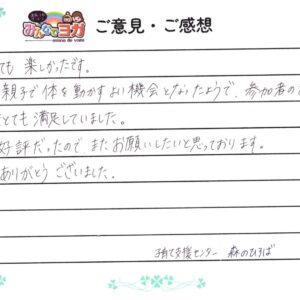 みんなでヨガ
minna de yoga
ご意見・ご感想
ても 楽しかったです。
親子で体を動かすよい機会となったようで、参加者の
とても満足していました。
好評だったので またお願いしたいと思っております。
ありがとうございました。
子育て支援センター 森のひろば